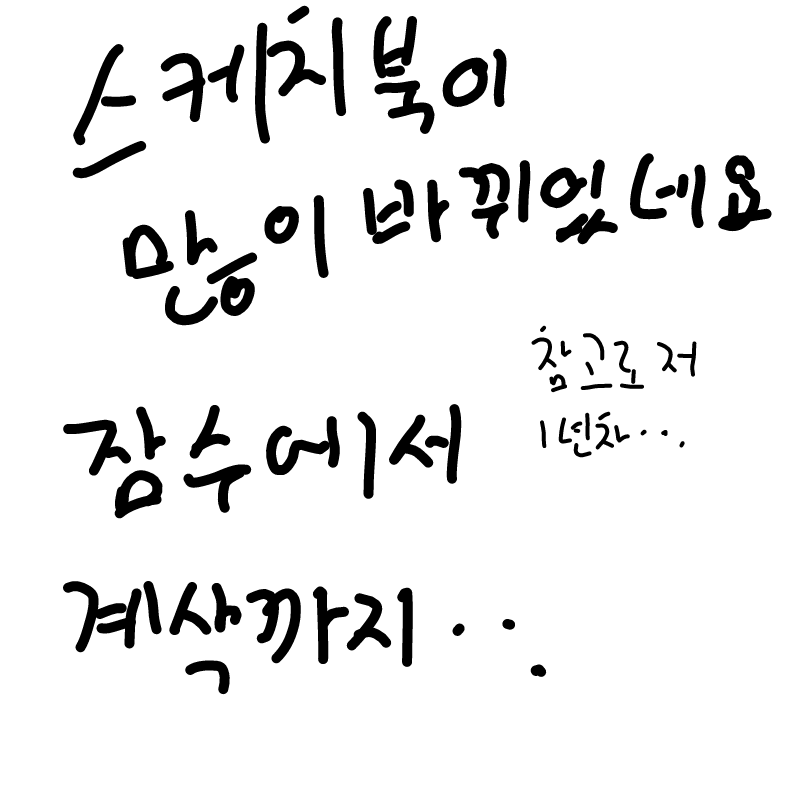 스케치북이
많이 바뀌었네요
참고로 저
1년차...
잠수에서
계삭까지...